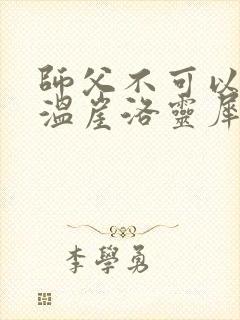 師父不可以
溫崖洛靈犀
李學勇